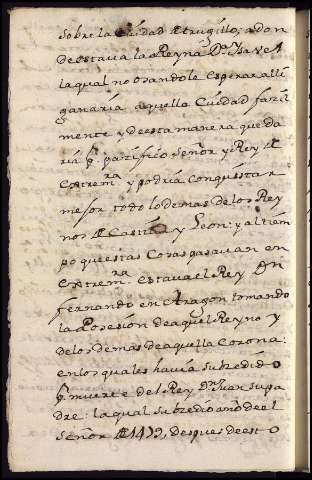 sobre la Ciudad de trugillo; adon
de estava la Reyna Dª. Isavel
la qual no osandole esperar alli
ganaria aquella Ciudad fazil
mente y de esta manera queda
ria pʳ. pazifico Señor y Rey de
Extremʳᵃ y podria conquistar
mejor todo lo demas de los Rey
nos de Castilla y Leon: y al tiem
po que estas Cosas pasavan en
Extremʳᵃ. estava el Rey Dn
fernando en Aragon tomando
la Posesión de aquel Reyno y
de los Demas de aquella Corona:
en los quales havia subzedido
pʳ. muerte del Rey Dⁿ Juan su pa
dre: la qual subzedio año de el
Señor de 1479, despues de esto